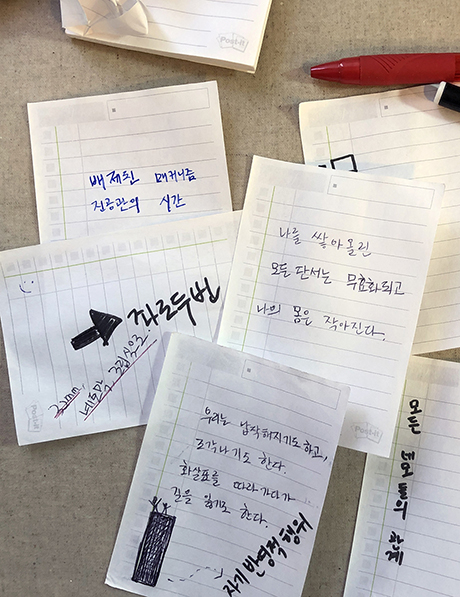 Post-it
배제된 매커니즘
진공관의 시간
나를 쌓아올린
모든 단서는 무효화되고
나의 몸은 작아진다.
좌로두번
22mm,
네모만 그립싶으로
Post-it
우리는 납작해지기도하고,
조각나기도 한다.
화살표를 따라가다가
길을 잃기도 한다.
자기반영적행위
Post-it
모든 네모들의 한계